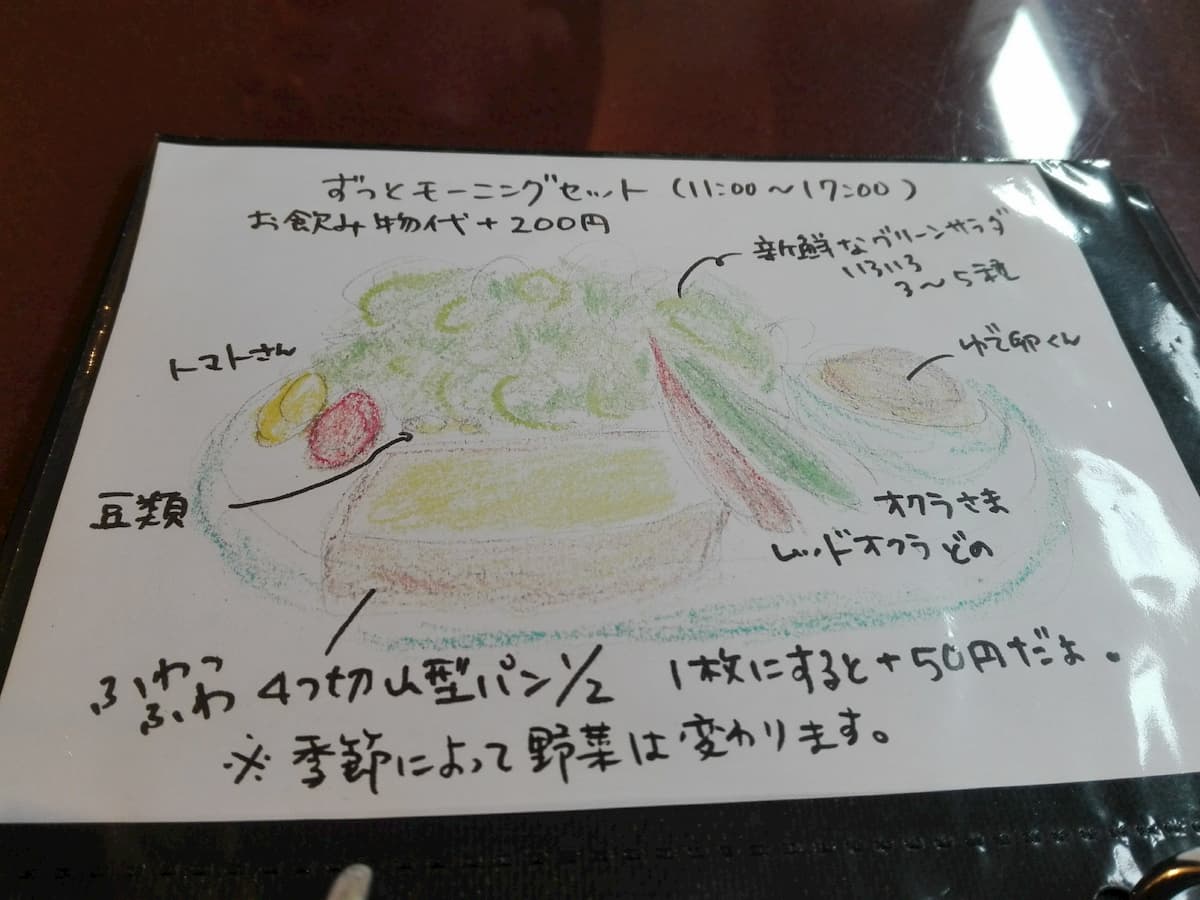 ずっとモーニングセット (11:00～17:00)
お飲み物代+200円
新鮮なグリーンサラダ
いろいろ
3～5種
トマトさん
ゆで卵くん
豆類
オクラさま
レッドオクラどの
ふわっ
ふわ
4つ切山型パン1/2 1枚にすると+50円だよ。
※季節によって野菜は変わります。